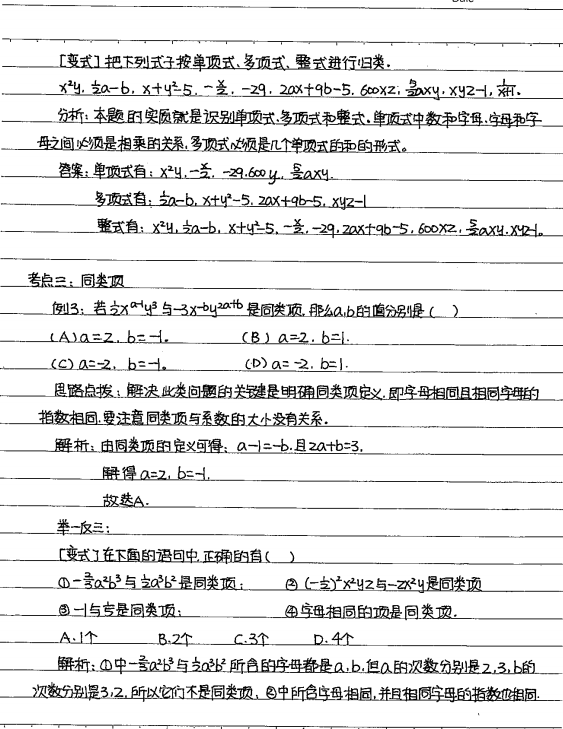 Date
[变式]把下列式子按单项式、多项式、整式进行归类.
x²y, ½a-b, x+y²-5, -x/2, -29, 2ax+9b-5, 600xz, 5/3axy, xyz-1, 1/(x+1).
分析：本题的实质就是识别单项式、多项式和整式。单项式中数和字母、字母和字
母之间必须是相乘的关系，多项式必须是几个单项式的和的形式。
答案：单项式有：x²y, -x/2, -29, 600y, 5/3axy.
多项式有：½a-b, x+y²-5, 2ax+9b-5, xyz-1
整式有：x²y, ½a-b, x+y²-5, -x/2, -29, 2ax+9b-5, 600xz, 5/3axy, xyz-1。
考点三：同类项
例3：若½xᵃ⁻¹y³与-3x⁻ᵇy²ᵃ⁺ᵇ是同类项,那么a,b的值分别是( )
(A) a=2, b=-1。 (B) a=2, b=1.
(C) a=-2, b=-1。 (D) a=-2, b=1.
思路点拨：解决此类问题的关键是明确同类项定义,即字母相同且相同字母的
指数相同,要注意同类项与系数的大小没有关系.
解析：由同类项的定义可得：a-1=-b,且2a+b=3,
解得 a=2, b=-1.
故选A.
举一反三：
[变式]在下面的语句中,正确的有( )
①-⅔a²b³与½a³b²是同类项； ②(-½)²x²yz与-zx²y是同类项
③-1与⅕是同类项； ④字母相同的项是同类项.
A.1个 B.2个 C.3个 D.4个
解析：①中-⅔a²b³与½a³b²所含的字母都是a,b,但a的次数分别是2,3,b的
次数分别是3,2,所以它们不是同类项、②中所含字母相同,并且相同字母的指数也相同.